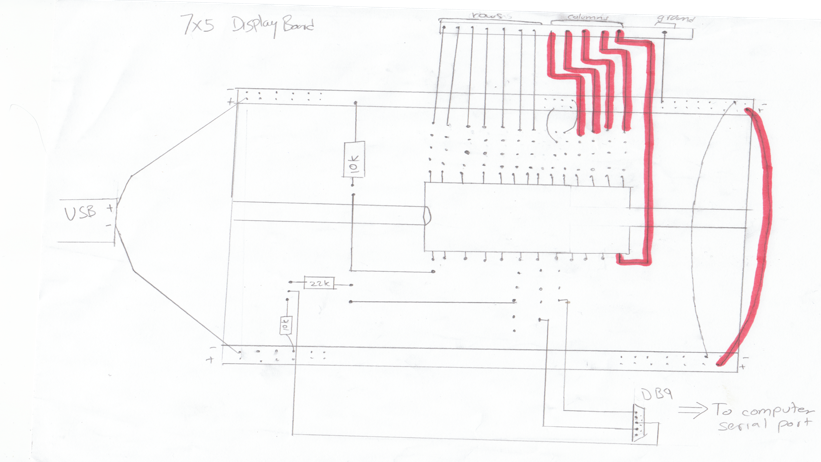 7x5 Display Board
rows
columns
ground
- +
- +
10k
USB
+
-
22k
10k
- +
- +
DB9
⇒ To computer
serial port